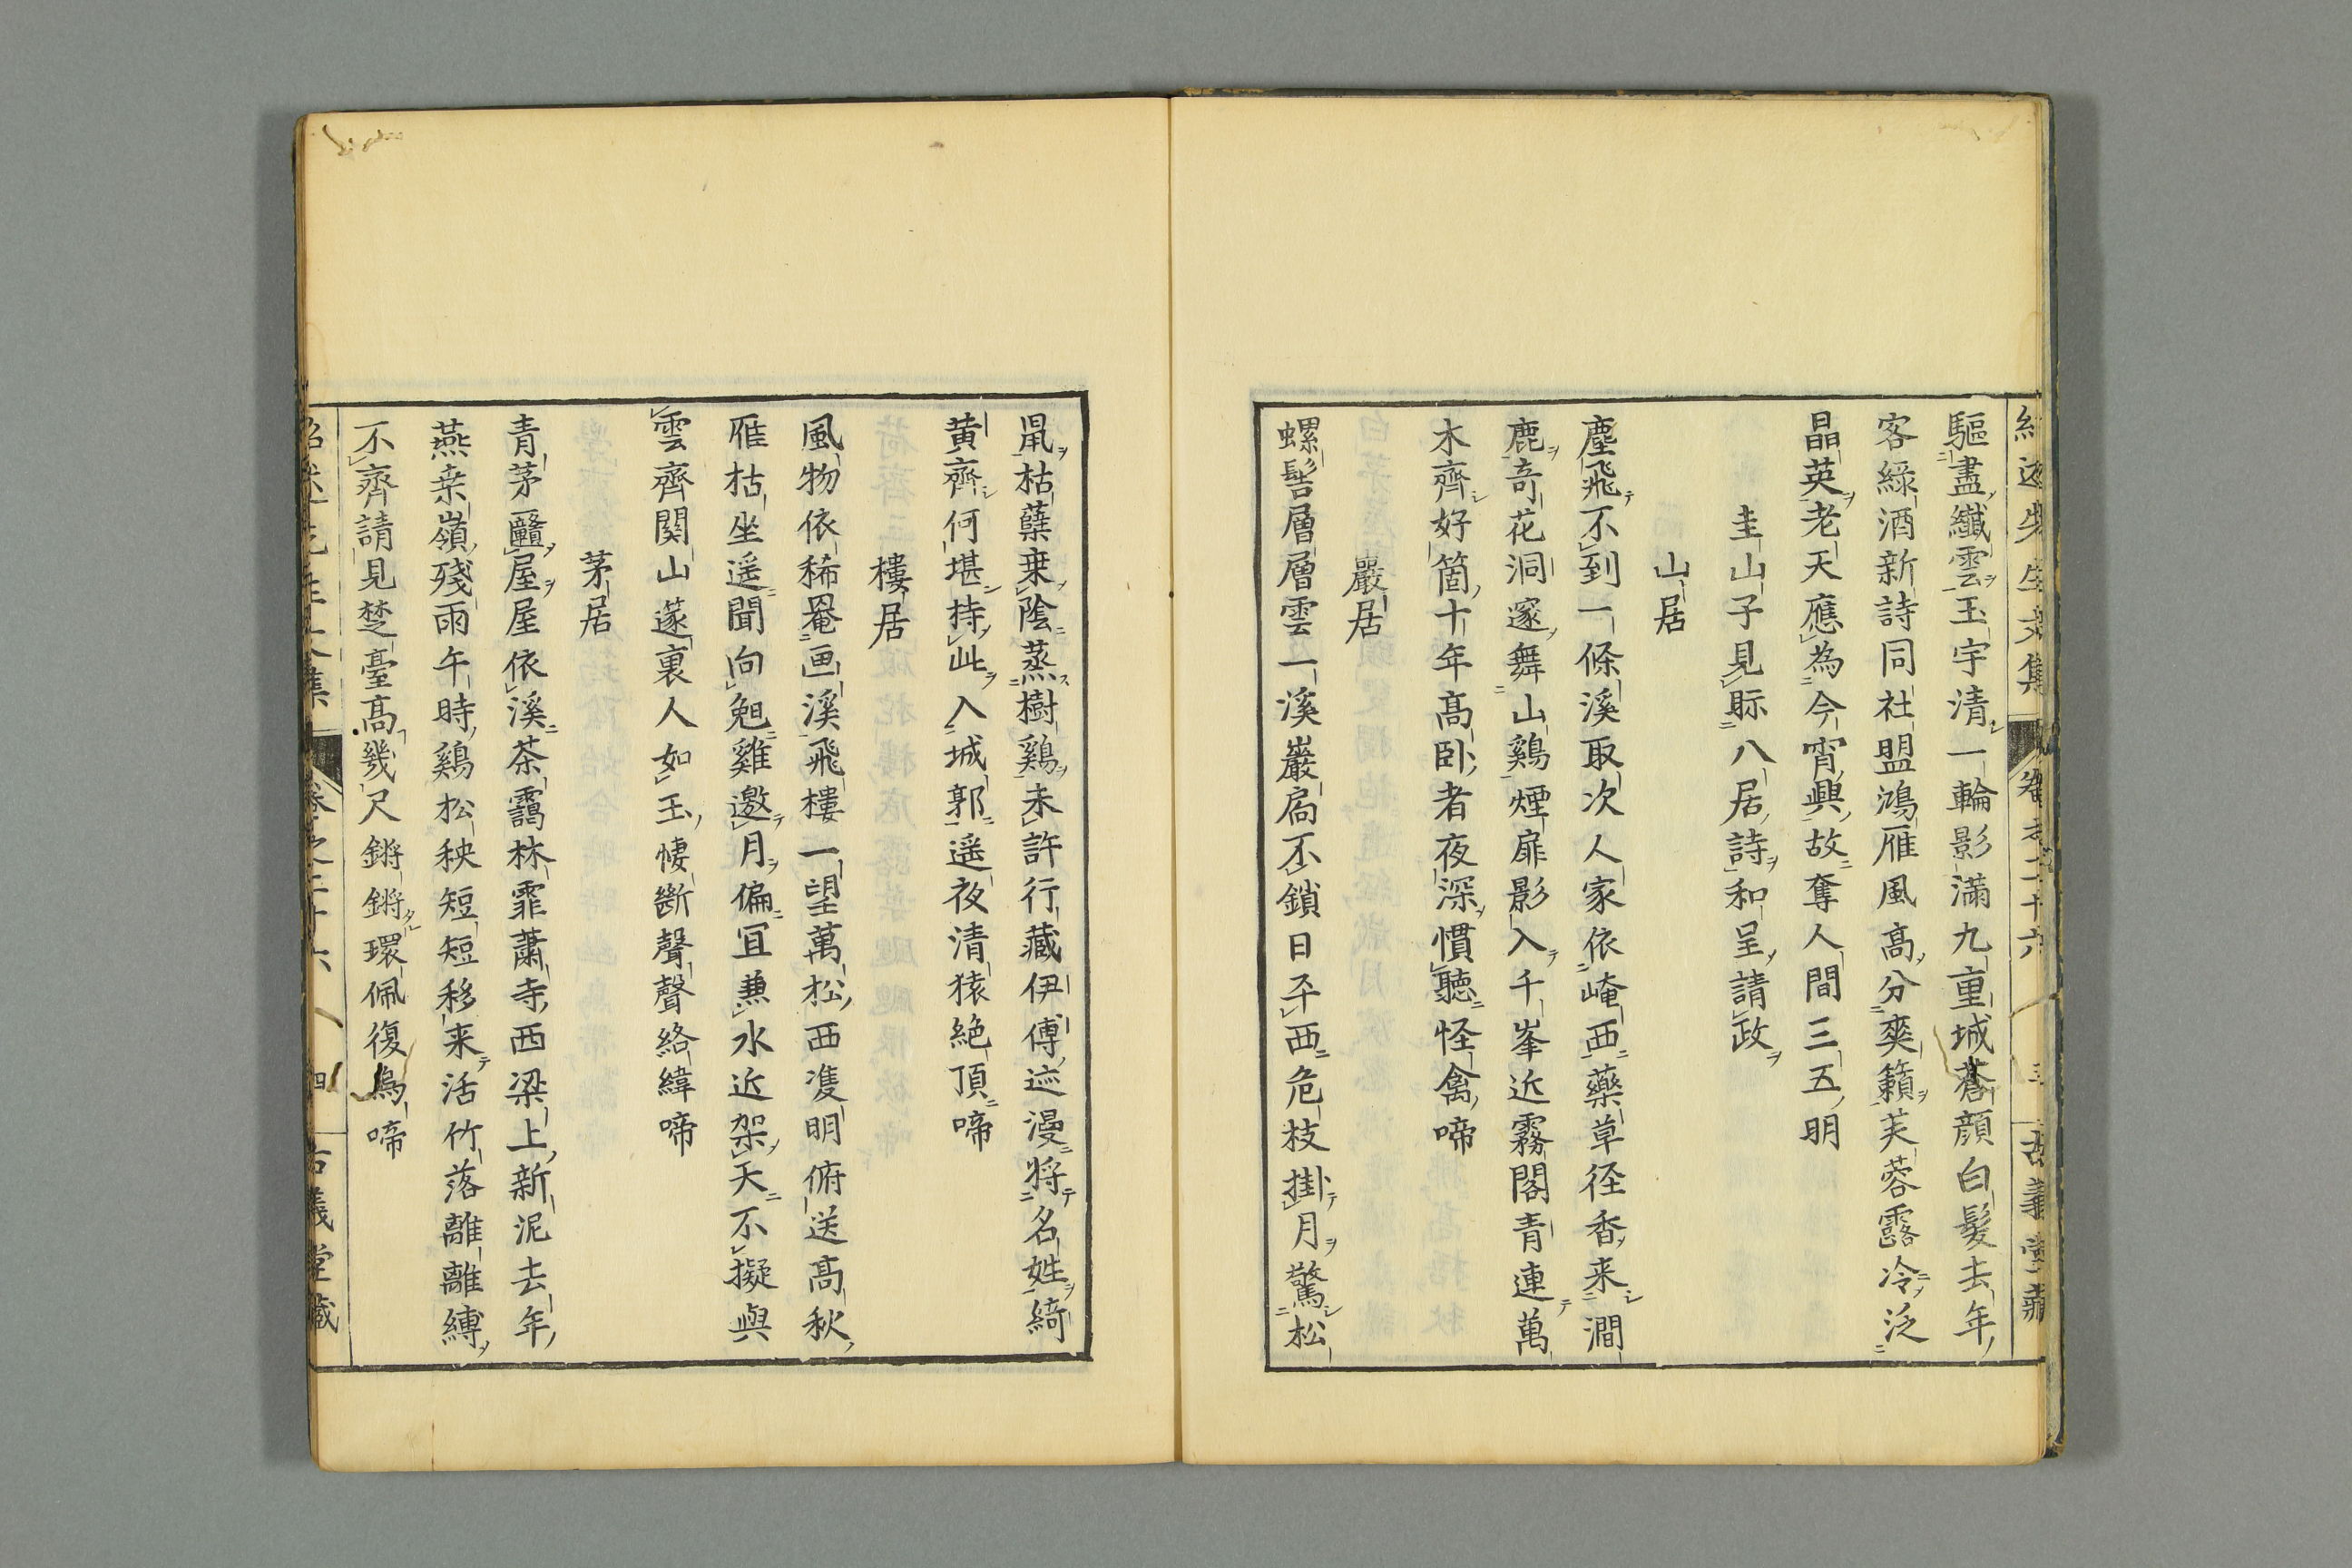 紹述先生文集 卷之二十六 三 古義堂藏
驅盡纖雲玉宇清一輪影滿九重城蒼顔白髮去年
客綠酒新詩同社盟鴻雁風高分爽籟芙蓉露冷泛
晶英老天應為今宵興故奪人間三五明
圭山子見眎八居詩和呈請政
山居
塵飛不到一條溪取次人家依崦西藥草径香来澗
鹿奇花洞邃舞山鷄煙扉影入千峯近霧閣青連萬
木齊好箇十年高卧者夜深慣聽怪禽啼
巖居
螺髻層層雲一溪巖扃不鎖日平西危枝掛月驚松
鼠枯蘖乗陰蒸樹鷄未許行藏伊傅迹漫将名姓綺
黄齊何堪持此入城郭遥夜清猿絶頂啼
樓居
風物依稀罨画溪飛樓一望萬松西隻明俯送高秋
雁枯坐遥聞向曉雞邀月偏冝兼水近架天不擬與
雲齊関山邃裏人如玉悽斷聲聲絡緯啼
茅居
青茅屋屋依溪茶靄林霏蕭寺西梁上新泥去年
燕桒嶺殘雨午時鷄松秧短短移来活竹落離離縛
不齊請見楚臺高幾尺鏘鏘環佩復烏啼
紹述先生文集 卷之二十六 四 古義堂藏